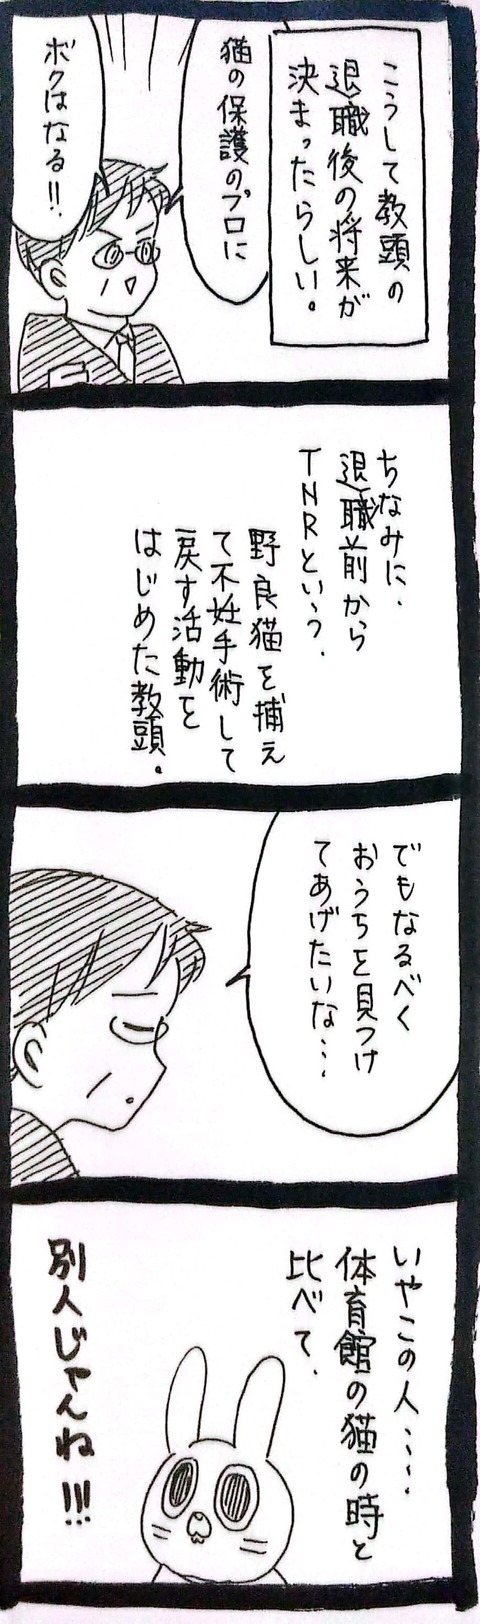 こうして教頭の
退職後の将来が
決まったらしい。
猫の保護のプロに
ボクはなる!!
ちなみに、
退職前から
TNRという、
野良猫を捕え
て不妊手術して
戻す活動を
はじめた教頭。
でもなるべく
おうちを見つけ
てあげたいな…
いやこの人……
体育館の猫の時と
比べて、
別人じゃんね!!!